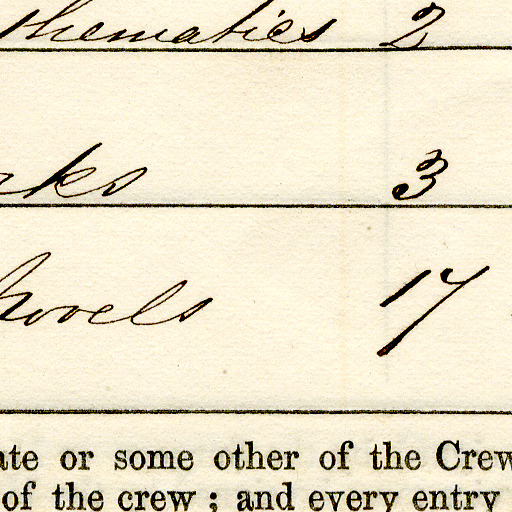 thematics 2
rks 3
Novels 17
ate or some other of the Crew
of the crew ; and every entry